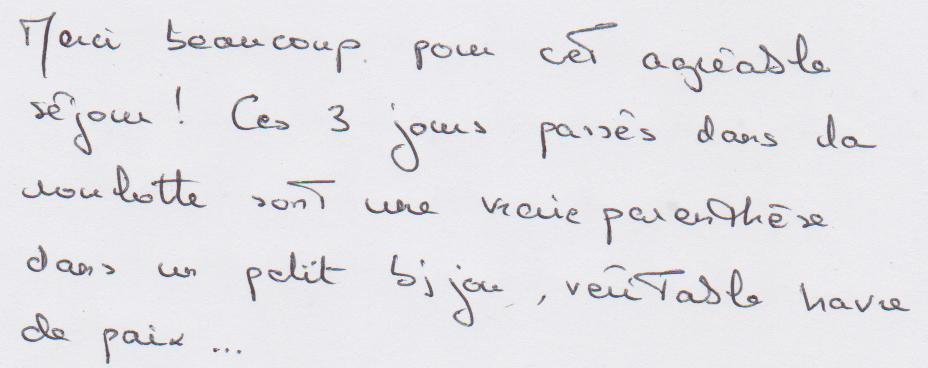 Merci beaucoup pour cet agréable
séjour! Ces 3 jours passés dans la
roulotte sont une vraie parenthèse
dans un petit bijou, véritable havre
de paix...